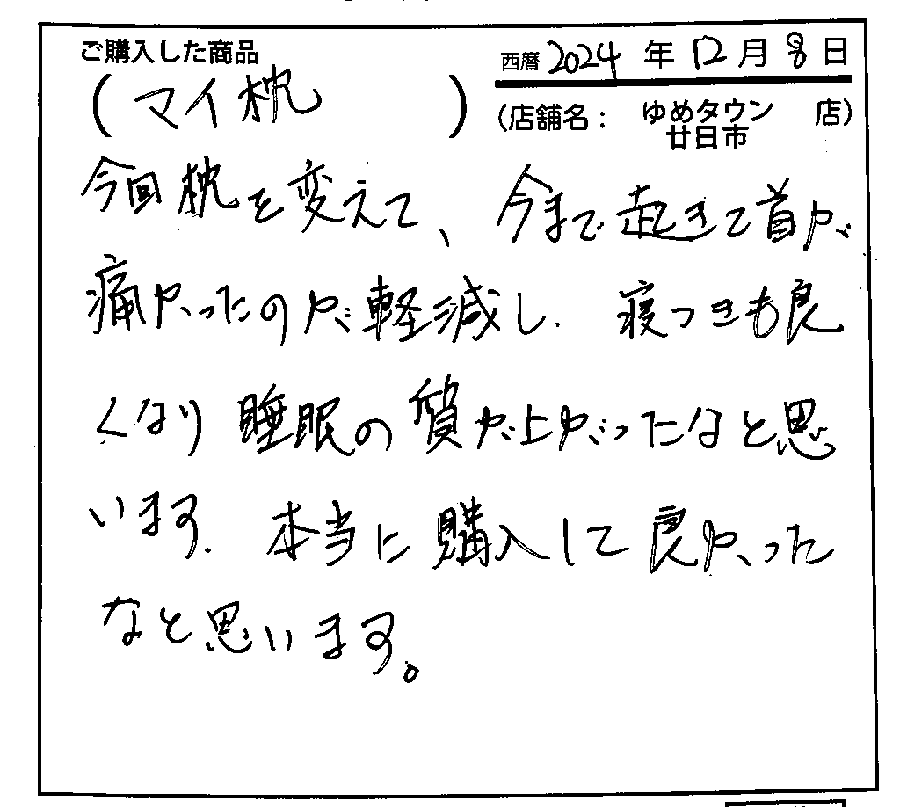 ご購入した商品
西暦 2024 年 12 月 8 日
( マイ枕 )
(店舗名： ゆめタウン 廿日市 店)
今回枕を変えて、今まで起きて首が
痛かったのが軽減し、寝つきも良
くなり睡眠の質が上がったなと思
います。本当に購入して良かった
なと思います。